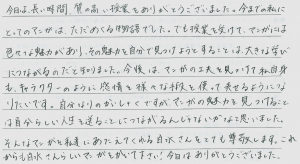 今日は、長い時間、質の高い授業をありがとうございました。今までの私に
とってのマンガは、ただめくる物語でした。でも授業を受けて、マンガには
色々な魅力があり、その魅力を自分で見つけようとすることは、大きな学び
につながるのだと知りました。今後は、マンガの工夫を見つけて、私自身
も、キャラクターのように感情を様々な手段を使って表せるようにな
りたいです。自分なりのがいしゃくですが、マンガの魅力を見つけること
は自分らしい人生を送ることにつながるんじゃないかなと思いました。
そんなマンガと私達にあたえてくれる白水さんをとても尊敬します。これ
からも白水さんらしいマンガをかいて下さい!今日はありがとうございました。